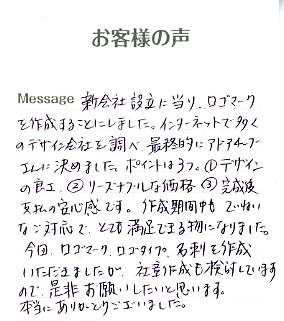 お客様の声
Message 新会社設立に当り、ロゴマーク
を作成することにしました。インターネットで多く
のデザイン会社を調べ、最終的にアドアチーブ
さんに決めました。ポイントは3つ。①デザイン
の良さ、②リーズナブルな価格 ③完成後
支払の安心感です。作成期間中も ていねい
なご対応で、とても満足できる物になりました。
今回、ロゴマーク、ロゴタイプ、名刺を作成
いただきましたが、社章作成も検討しています
ので、是非お願いしたいと思います。
本当にありがとうございました。